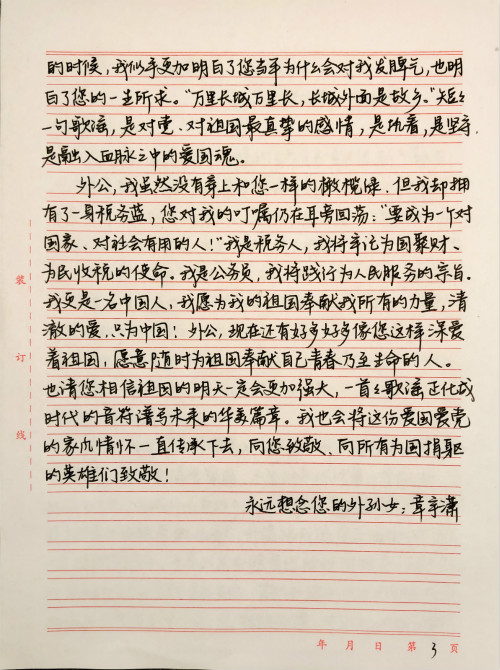 的时候，我似乎更加明白了您当年为什么会对我发脾气，也明
白了您的一生所求。“万里长城万里长，长城外面是故乡。”短短
一句歌谣，是对党、对祖国最真挚的感情，是执着，是坚守，
是融入血脉之中的爱国魂。
外公，我虽然没有穿上和您一样的橄榄绿，但我却拥
有了一身税务蓝，您对我的叮嘱仍在耳旁回荡：“要成为一个对
国家、对社会有用的人！”我是税务人，我将牢记为国聚财、
为民收税的使命。我是公务员，我将践行为人民服务的宗旨。
我更是一名中国人，我愿为我的祖国奉献我所有的力量，清
澈的爱，只为中国！外公，现在还有好多好多像您这样深爱
着祖国，愿意随时为祖国奉献自己青春乃至生命的人。
也请您相信祖国的明天一定会更加强大，一首首歌谣正化成
时代的音符谱写未来的华美篇章。我也会将这份爱国爱党
的家风情怀一直传承下去，向您致敬、向所有为国捐躯
的英雄们致敬！
永远想念您的外孙女：章宇潇
装
订
线
年 月 日 第 3 页